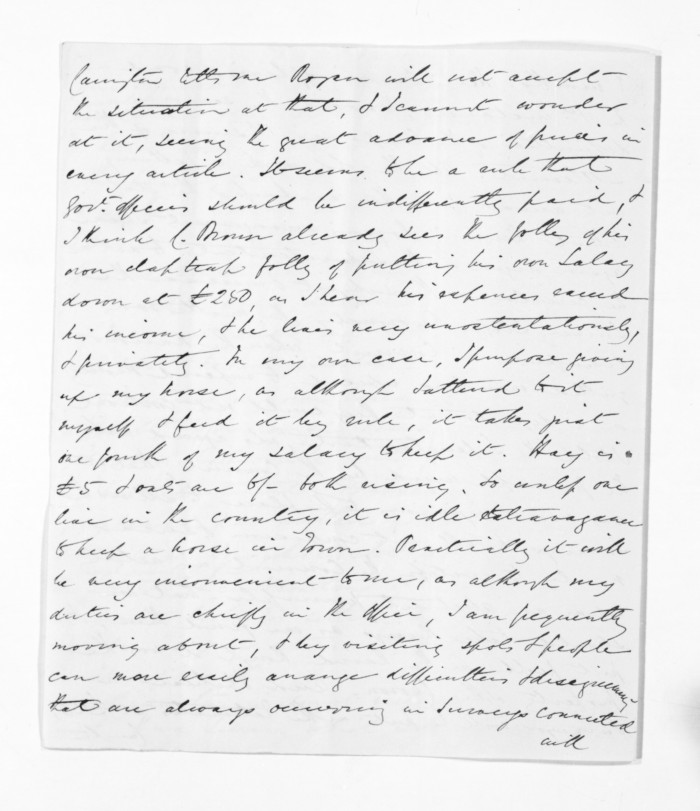 Carrington tells me Rogan will not accept
the situation at that, & I cannot wonder
at it, seeing the great advance of prices in
every article. It seems to be a rule that
Govt. officers should be indifferently paid, &
I think C. Brown already sees the folly of his
own claptrap folly of putting his own Salary
down at £250, as I hear his expences exceed
his income, & he lives very unostentatiously,
& privately. In my own case, I purpose giving
up my horse, as although I attend to it
myself & feed it by rule, it takes just
one fourth of my salary to keep it. Hay is
£5 & oats are 8/- both rising. So unless one
live in the country, it is idle extravagance
to keep a horse in Town. Practically it will
be very inconvenient to me, as although my
duties are chiefly in the office, I am frequently
moving about, & by visiting spots & people
can more easily arrange difficulties &
that are always occurring in Surveys connected
with